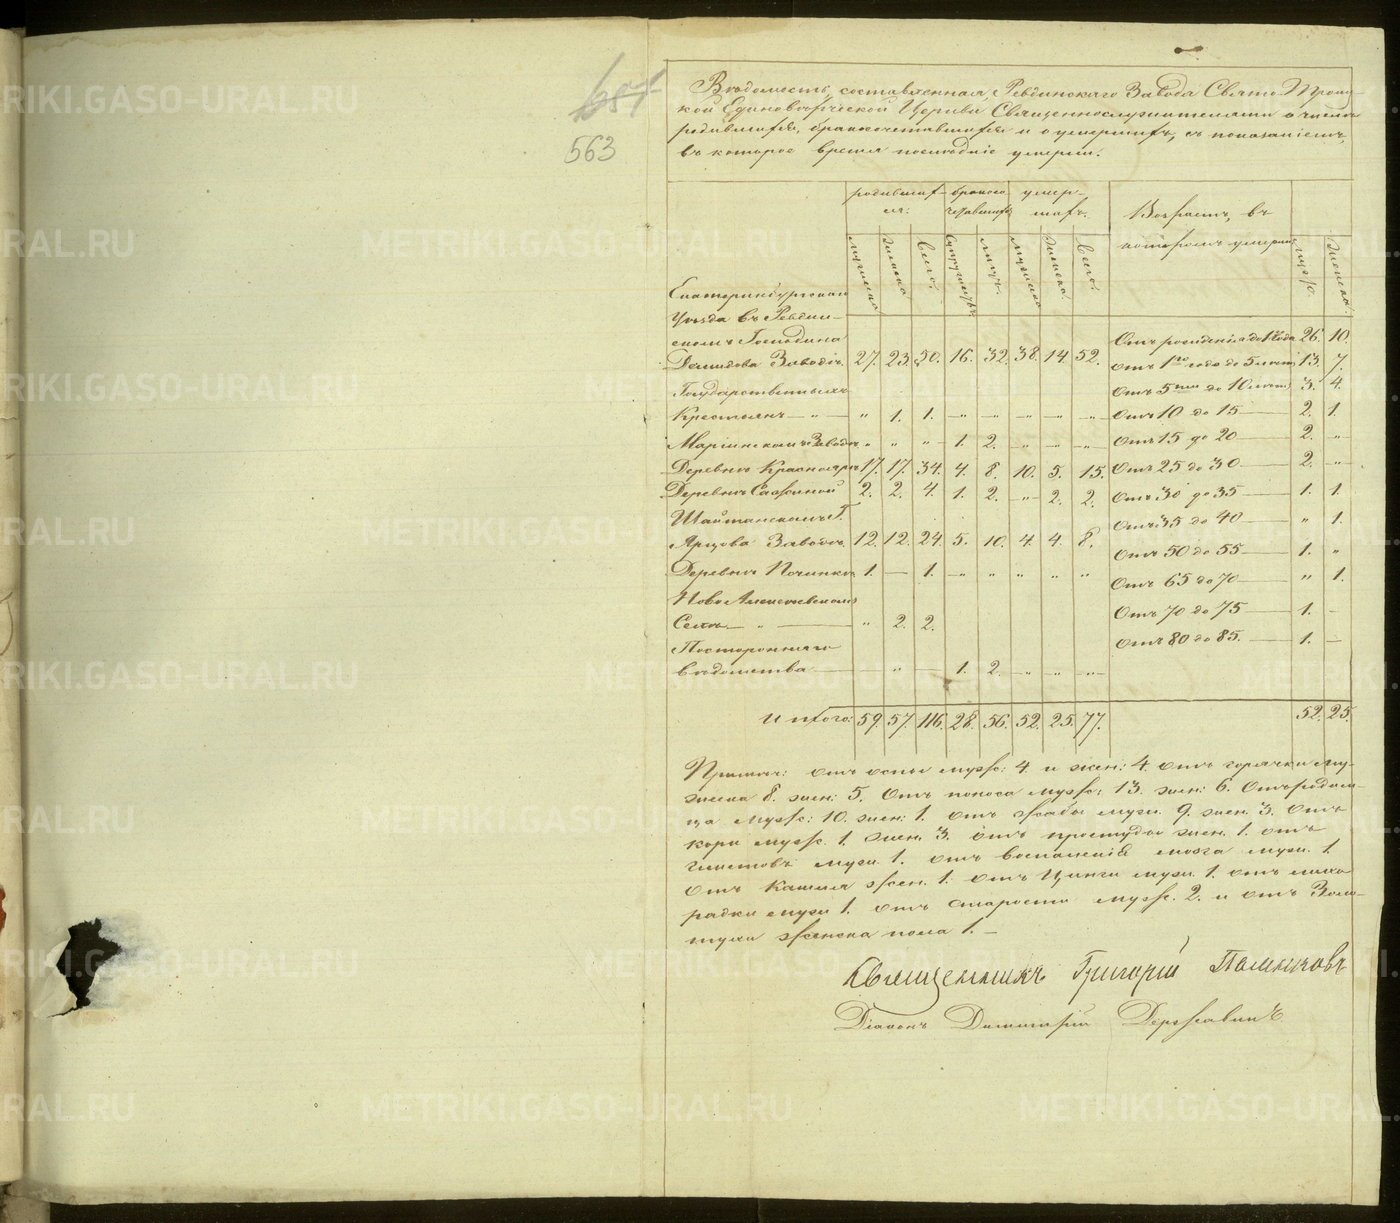 651
563
Вѣдомость, составленная, Ревдинскаго Завода Свято Троиц-
кой Единовѣрческой Церкви Священнослужителями о числѣ
родившихся, бракосочетавшихся и о умершихъ, съ показаніемъ,
въ которое время послѣдніе умерли.
родивших- брако со- умер-
ся: четавшихъ шихъ. Возрастъ, въ
которомъ умерли
мужеска женска Всего. Супружествъ лицъ. мужеска женска. Всего. муж. женска.
Екатеринбургскаго
Уѣзда въ Ревдин-
скомъ Господина
Демидова Заводѣ. 27. 23. 50. 16. 32. 38. 14. 52. Отъ рожденія до 1 года 26. 10.
отъ 1го года до 5 лѣтъ 13. 7.
Государственныхъ отъ 5ти до 10 лѣтъ 3. 4.
Крестьянъ — „ — „ 1. 1. —„— —„— —„— —„— —„— отъ 10 до 15 — 2. 1.
Маріинскомъ Заводѣ „ „ —„— 1. 2. —„— —„— —„— отъ 15 до 20 — 2. „
Деревнѣ Краснояръ 17. 17. 34. 4. 8. 10. 5. 15. отъ 25 до 30 — 2. „
Деревнѣ Сажиной 2. 2. 4. 1. 2. —„— 2. 2. отъ 30 до 35 — 1. 1.
Шайтанскомъ Г. отъ 35 до 40 — „ 1.
Ярцова Заводѣ. 12. 12. 24. 5. 10. 4. 4. 8. отъ 50 до 55 — 1. „
Деревнѣ Починкѣ 1. — 1. —„— „ „ „ „ отъ 65 до 70 — „ 1.
Ново Алексѣевскомъ
Селѣ — „ — „ 2. 2. отъ 70 до 75 — 1. —
Посторонняго отъ 80 до 85. — 1. —
вѣдомства — „ — 1. 2. —„— —„— —„—
Итого: 59. 57. 116. 28. 56. 52. 25. 77. 52. 25.
Примѣч: отъ оспы муж: 4 и жен: 4. отъ горячки му-
жеска 8. жен: 5. Отъ поноса муж: 13. жен: 6. Отъ родим-
ца муж: 10. жен: 1. отъ жабы муж. 9. жен. 3. отъ
кори муж. 1. жен. 3. отъ простуды жен. 1. отъ
глистовъ муж. 1. отъ воспаленія мозга муж. 1.
отъ Кашля жен. 1. отъ Цинги муж. 1. отъ лихо-
радки муж 1. отъ старости муж. 2. и отъ Золо-
тухи женска пола 1. —
Священникъ Григорій
Діаконъ Димитрій Державинъ
METRIKI.GASO-URAL.RU